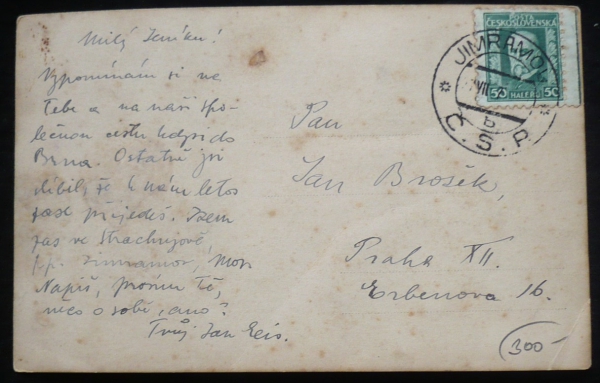 Milý Jeníku!
Vzpomínám si na
Tebe a na naši spo-
lečnou cestu kdysi do
Brna. Ostatně jsi
slíbil, že k nám letos
zase přijedeš. Jsem
zas ve Strachujově,
p. Jimramov, Mor.
Napiš, prosím Tě,
něco o sobě, ano?
Tvůj Jan
Pan
Jan Brošek,
Praha XII.
Erbenova 16.
POŠTA
ČESKOSLOVENSKÁ
50 HALÉŘŮ 50
JIMRAMOV
VII
b
Č.S.P.
300-